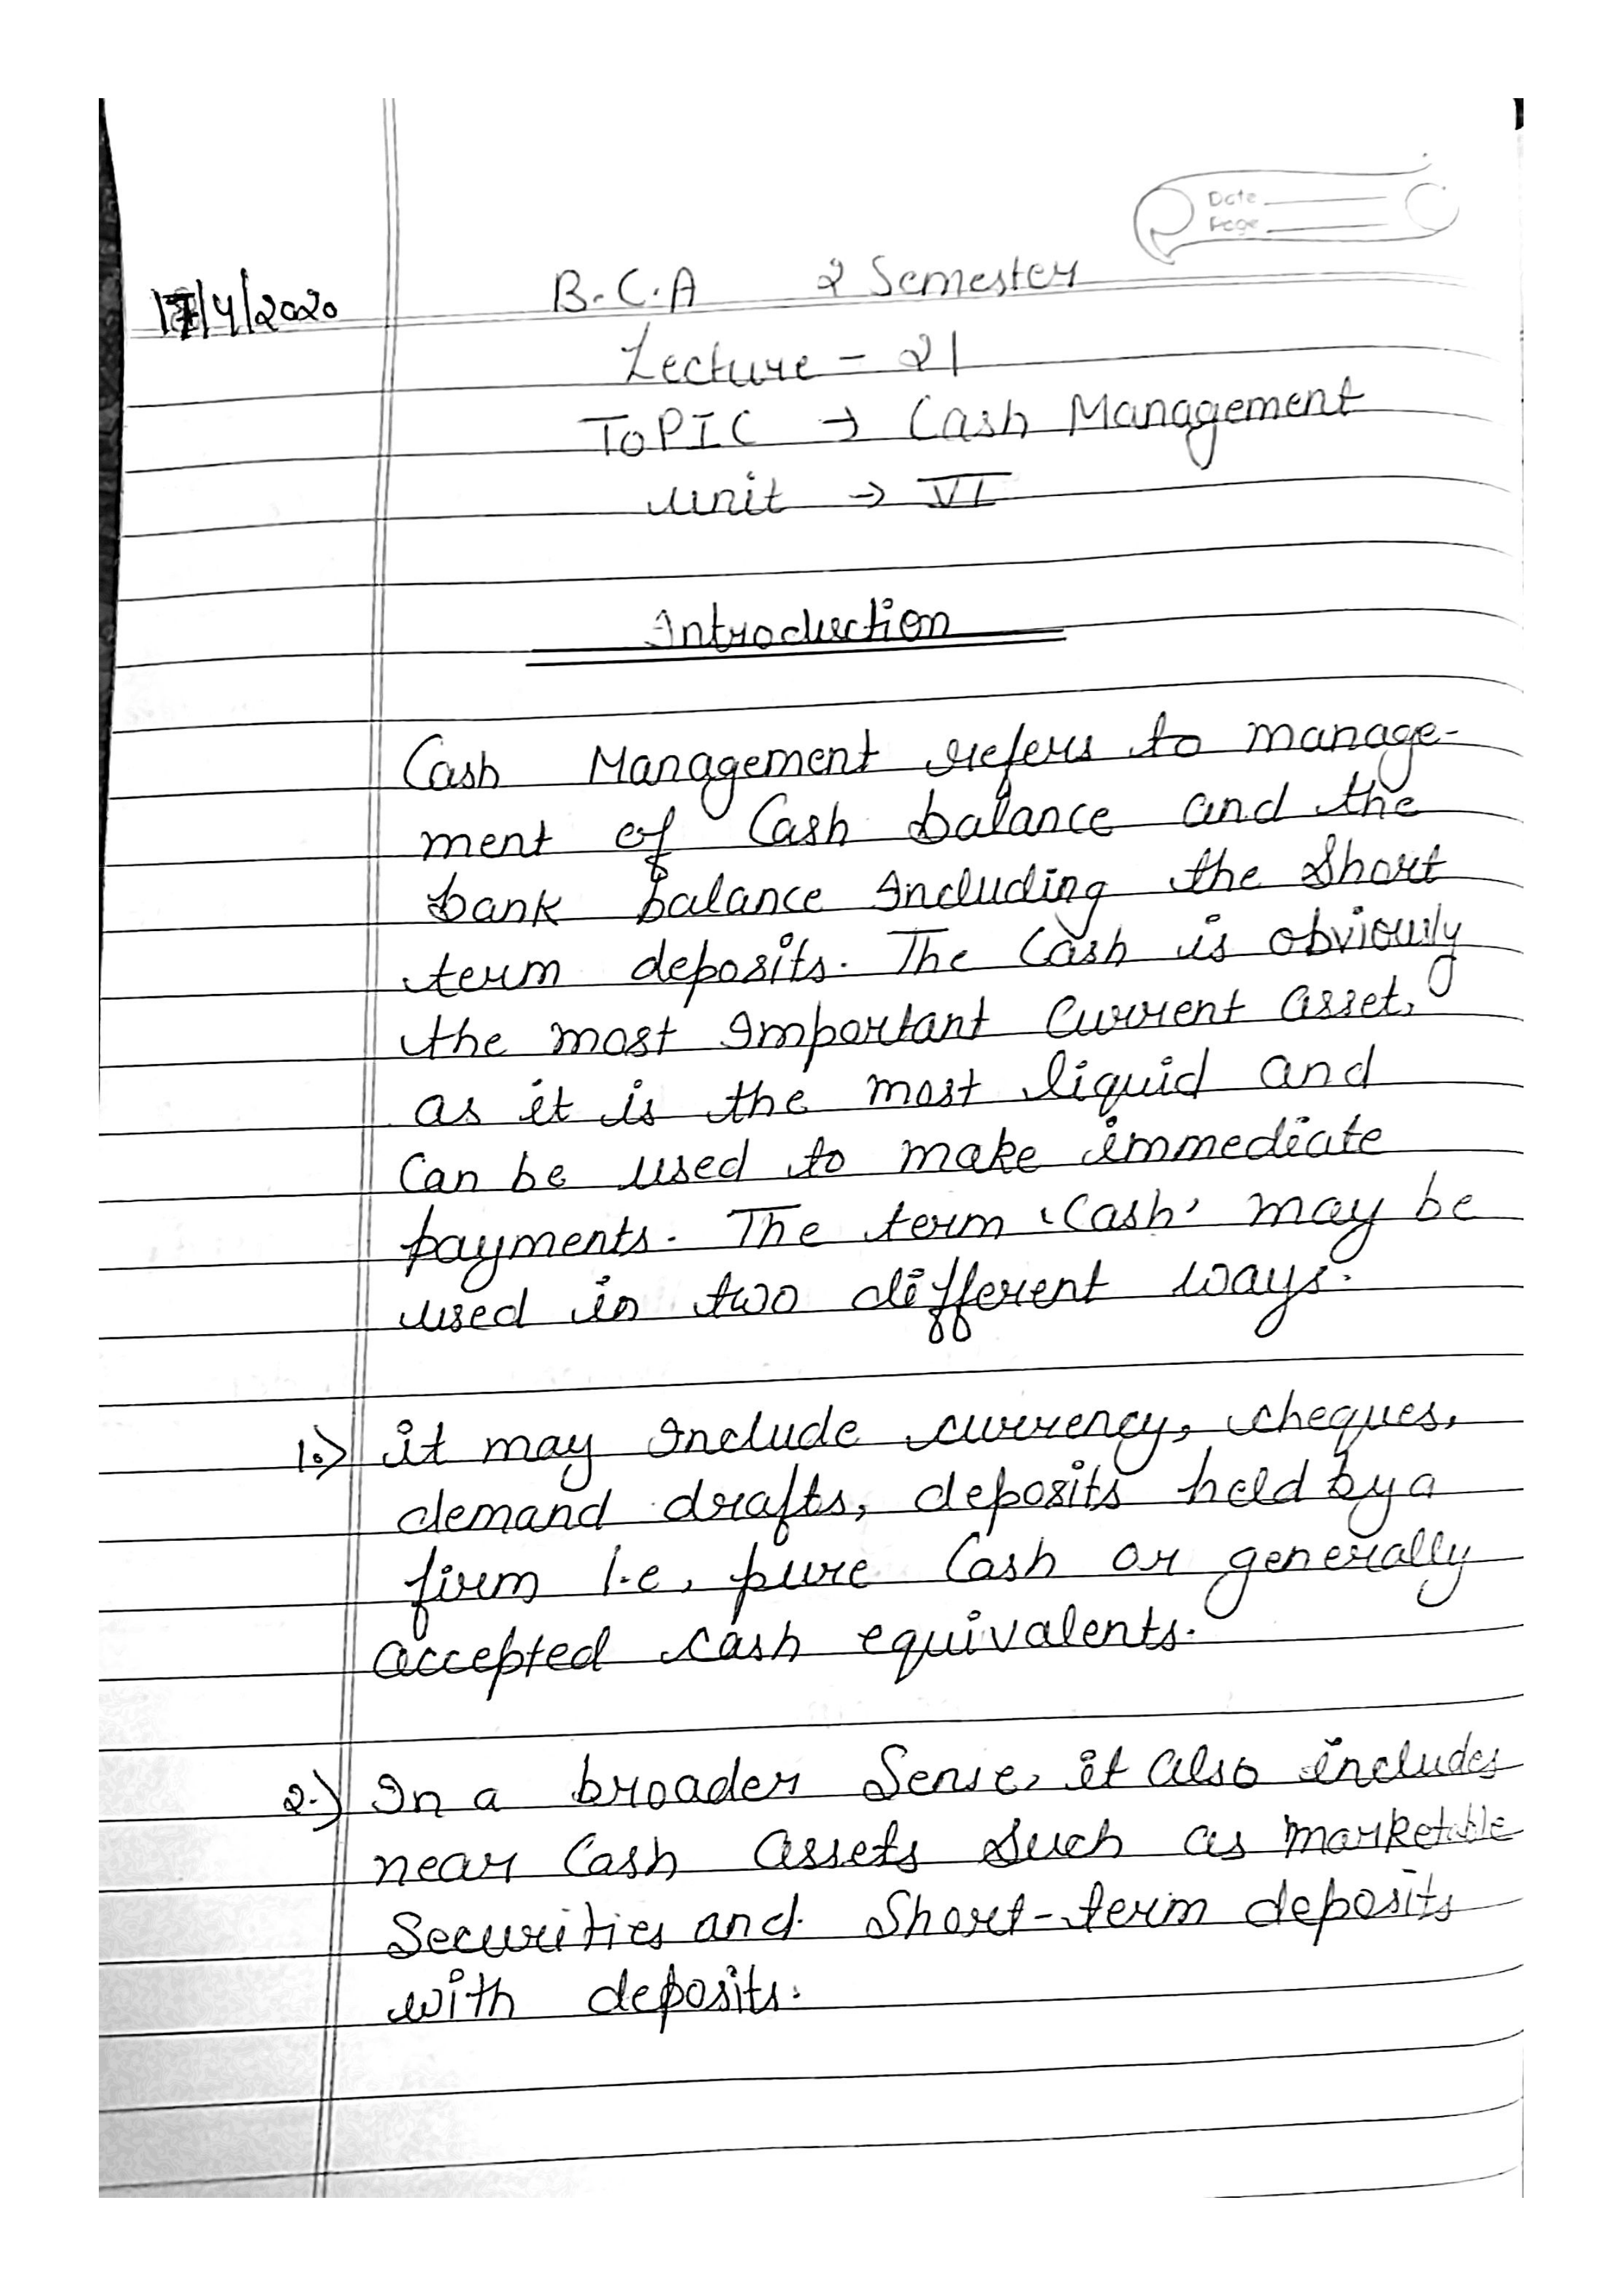 Date
Page
17/4/2020
B.C.A 2 Semester
Lecture - 21
TOPIC → Cash Management
Unit → VI
Introduction
Cash Management refers to manage-
ment of Cash balance and the
bank balance Including the Short
term deposits. The Cash is obviously
the most Important Current asset,
as it is the most liquid and
Can be used to make immediate
payments. The term 'Cash' may be
used in two different ways.
1.) it may Include currency, cheques,
demand drafts, deposits held by a
firm i.e, pure Cash or generally
accepted cash equivalents.
2.) In a broader Sense, it also includes
near Cash assets Such as marketable
Securities and Short-term deposits
with deposits.